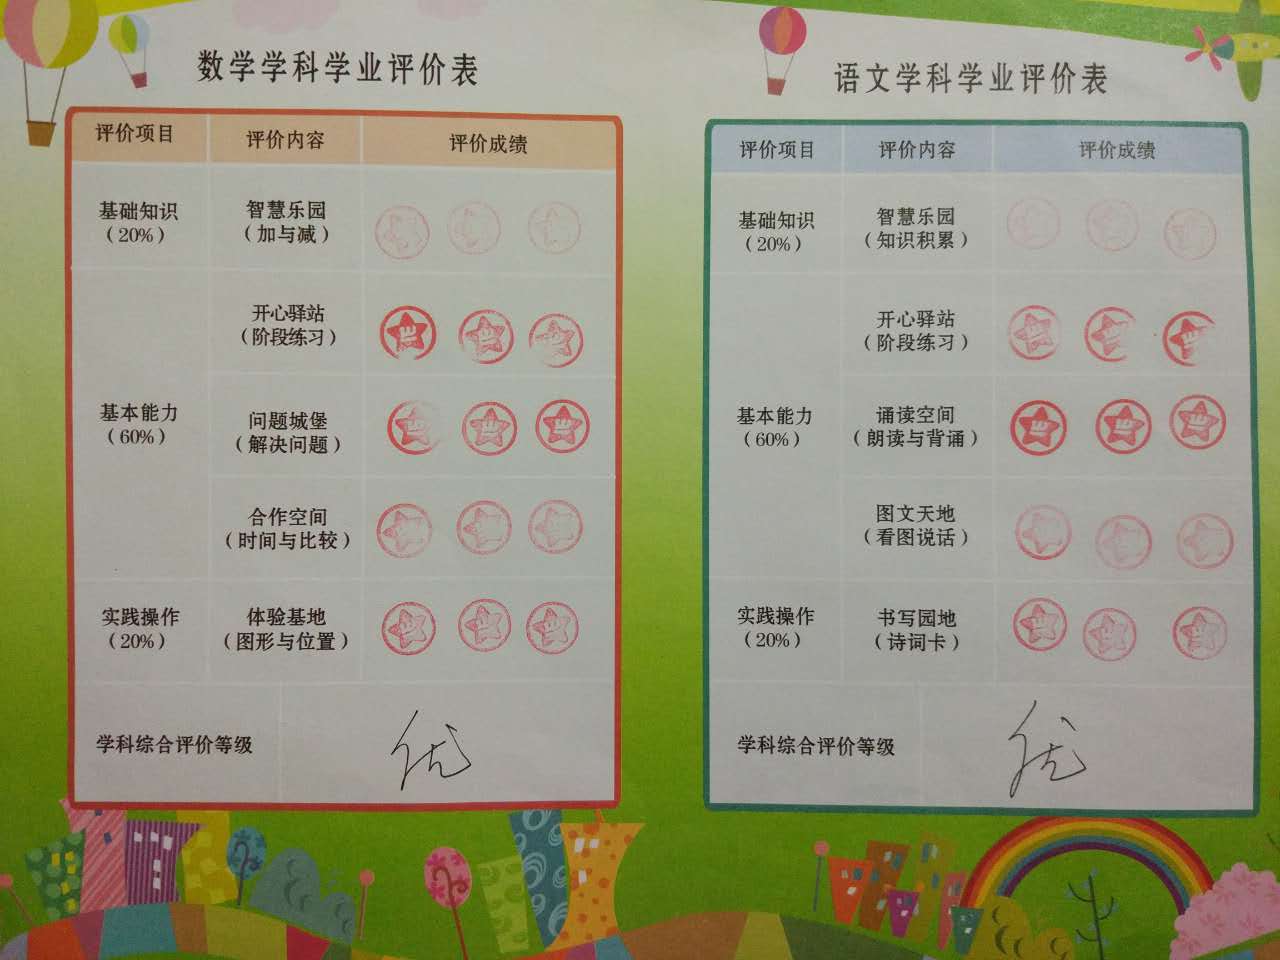 数学学科学业评价表
评价项目 评价内容 评价成绩
基础知识
（20%）
智慧乐园
（加与减）
基本能力
（60%）
开心驿站
（阶段练习）
问题城堡
（解决问题）
合作空间
（时间与比较）
实践操作
（20%）
体验基地
（图形与位置）
学科综合评价等级 优
语文学科学业评价表
评价项目 评价内容 评价成绩
基础知识
（20%）
智慧乐园
（知识积累）
基本能力
（60%）
开心驿站
（阶段练习）
诵读空间
（朗读与背诵）
图文天地
（看图说话）
实践操作
（20%）
书写园地
（诗词卡）
学科综合评价等级 优